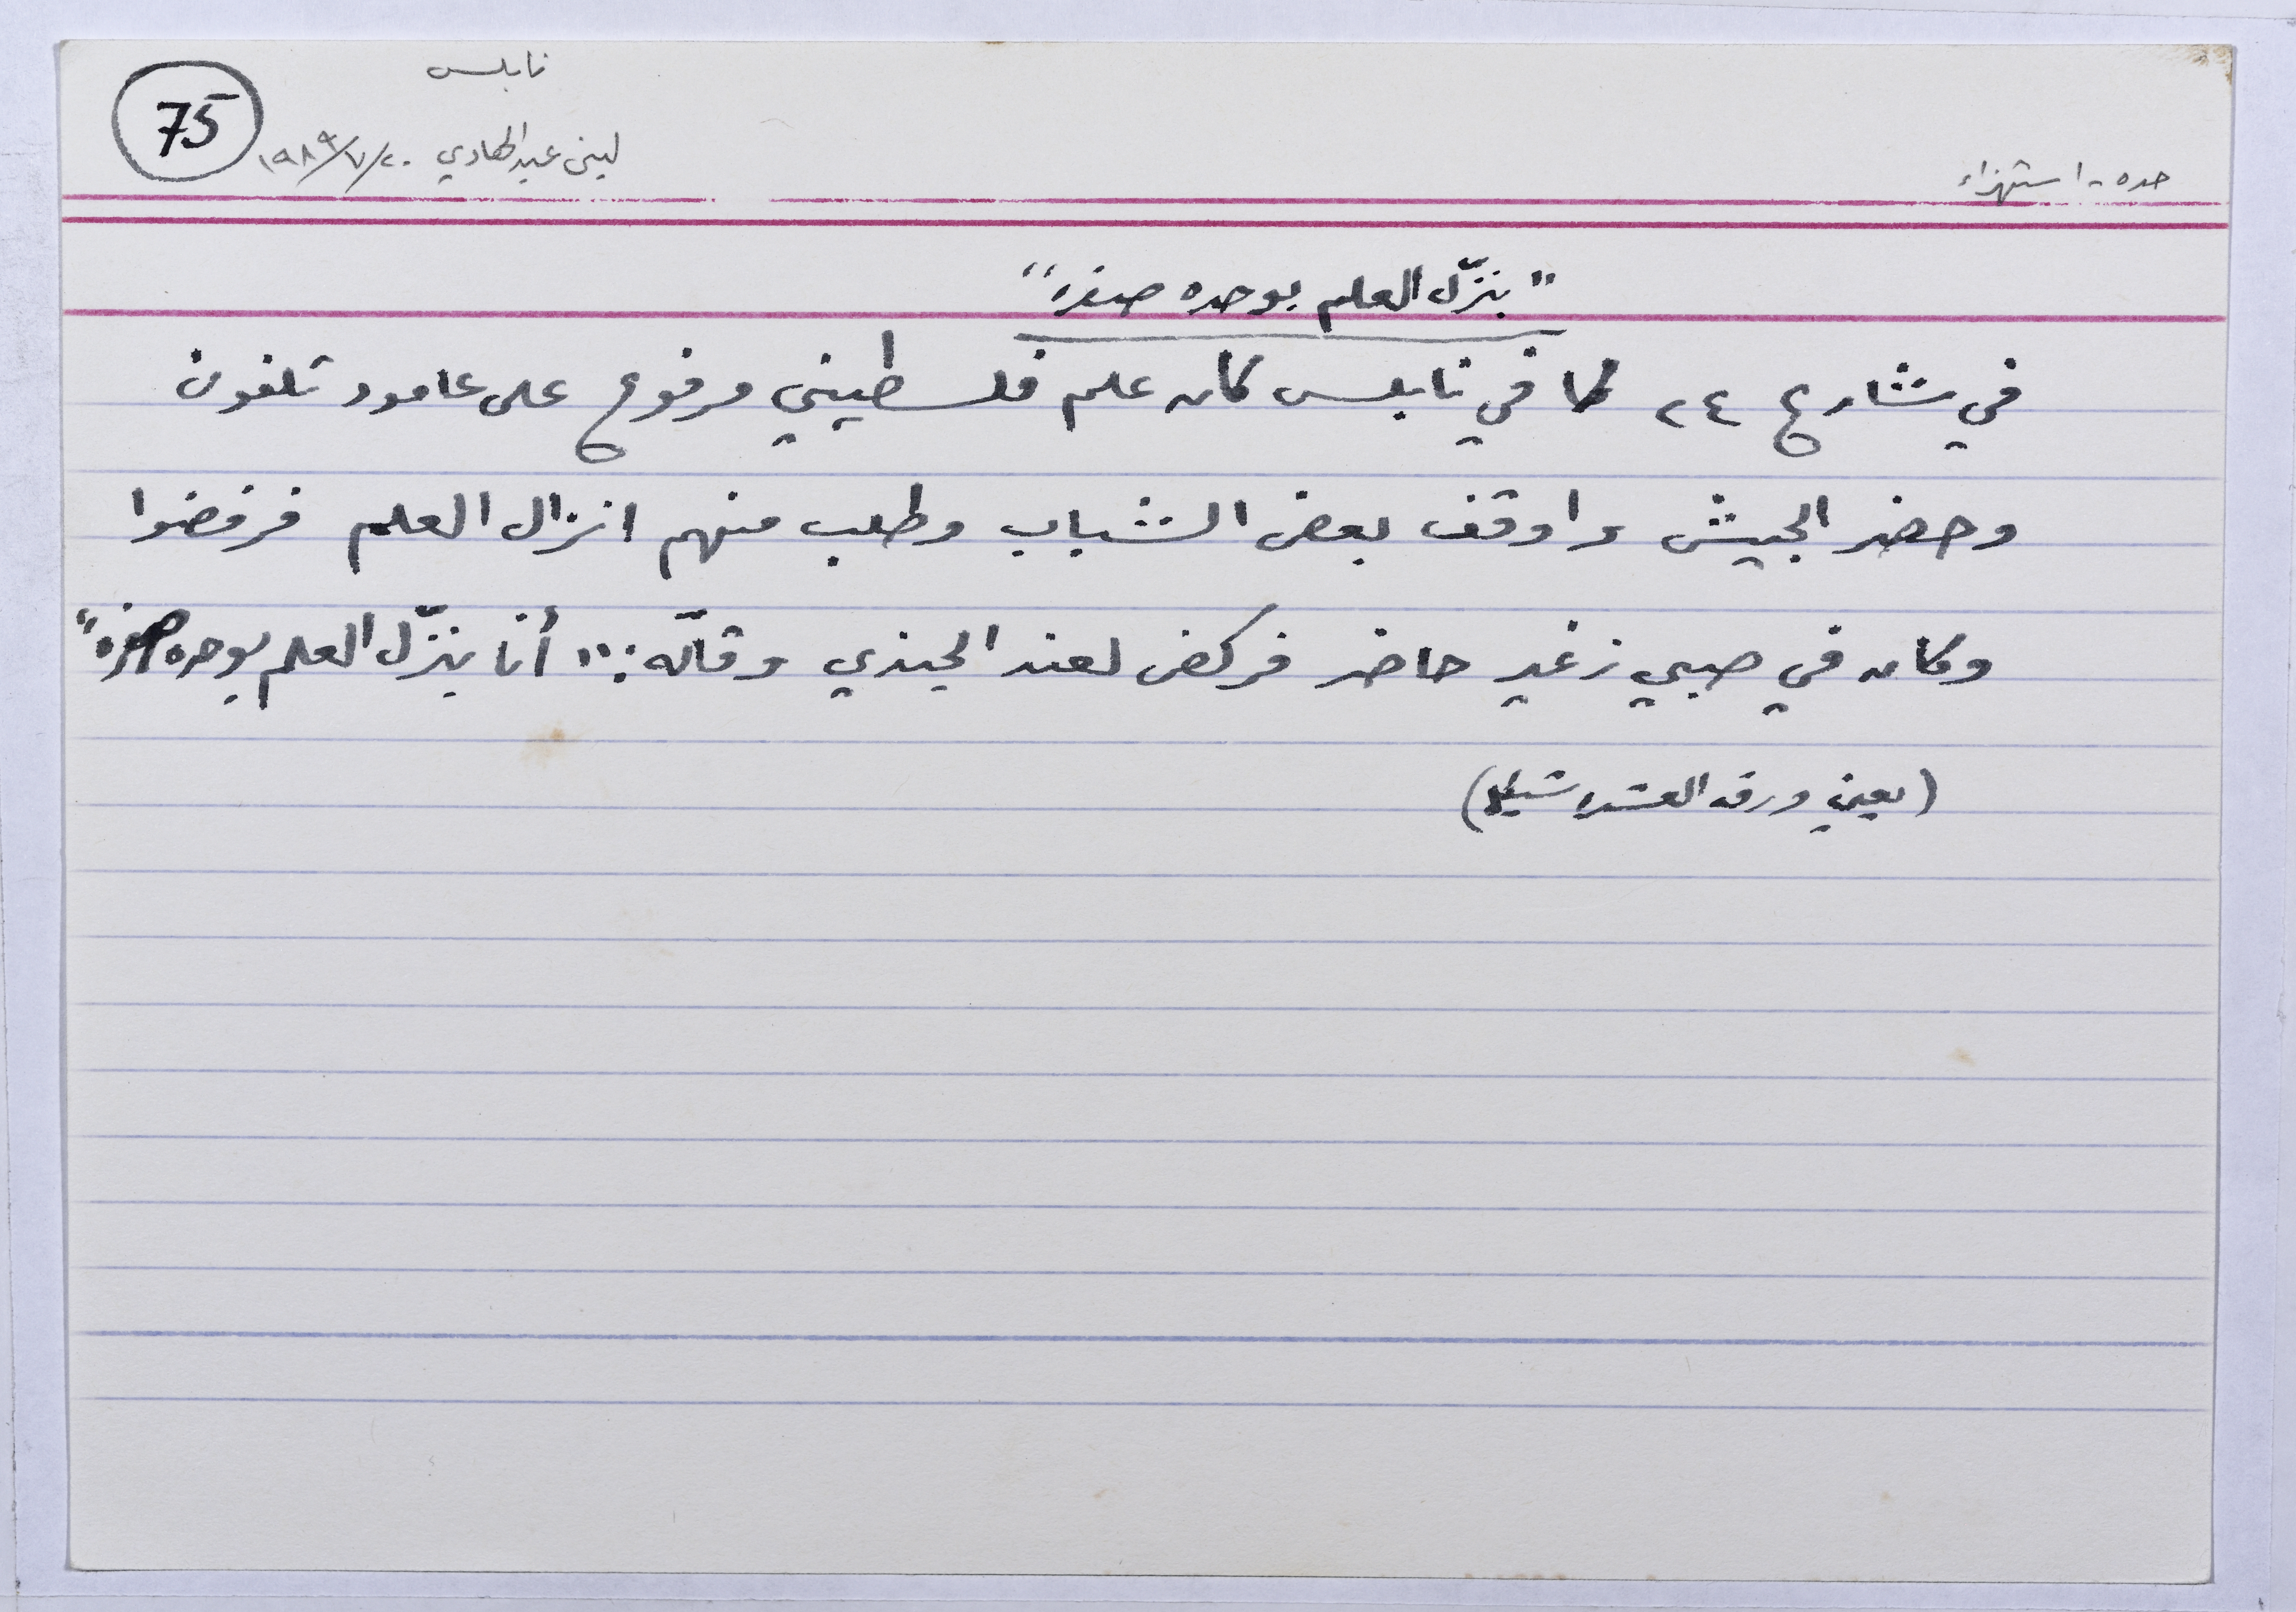 نابلس
75
لبنى عبدالهادي ٢٠/٧/١٩٨٩
حده - استهزاء
"بنزّل العلم بوحده صفرا"
في شارع ٢٤ في نابلس كان علم فلسطيني مرفوع على عامود تلفون
وحضر الجيش واوقف بعض الشباب وطلب منهم انزال العلم فرفضوا
وكان في صبي زغير حاضر فركض لعند الجندي وقالّه: "أنا بنزّل العلم بوحده صفرا"
(يعني ورقة العشره شيكل)